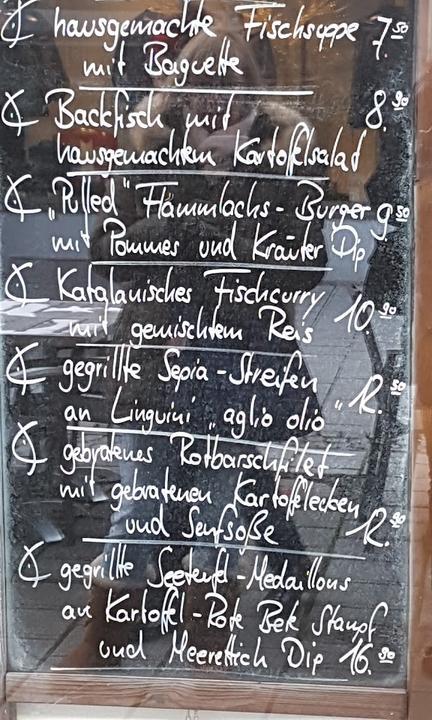 hausgemachte Fischsuppe 7.50
mit Baguette
Backfisch mit 8.90
hausgemachtem Kartoffelsalat
„Pulled" Flammlachs-Burger 9.50
mit Pommes und Kräuter Dip
Katalanisches Fischcurry
mit gemischtem Reis 10.90
gegrillte Sepia-Streifen
an Linguini „aglio olio" 12.50
gebratenes Rotbarschfilet
mit gebratenen Kartoffelecken
und Senfsoße 12.90
gegrillte Seeteufel-Medaillons
an Kartoffel-Rote Bek Stampf
und Meerettich Dip 16.90